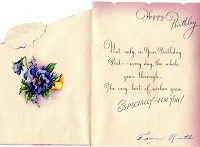 Happy
Birthday
Not only on Your Birthday
But - - every day, the whole
year through,
The very best of wishes you
ESPECIALLY - FOR YOU!
From Ruth